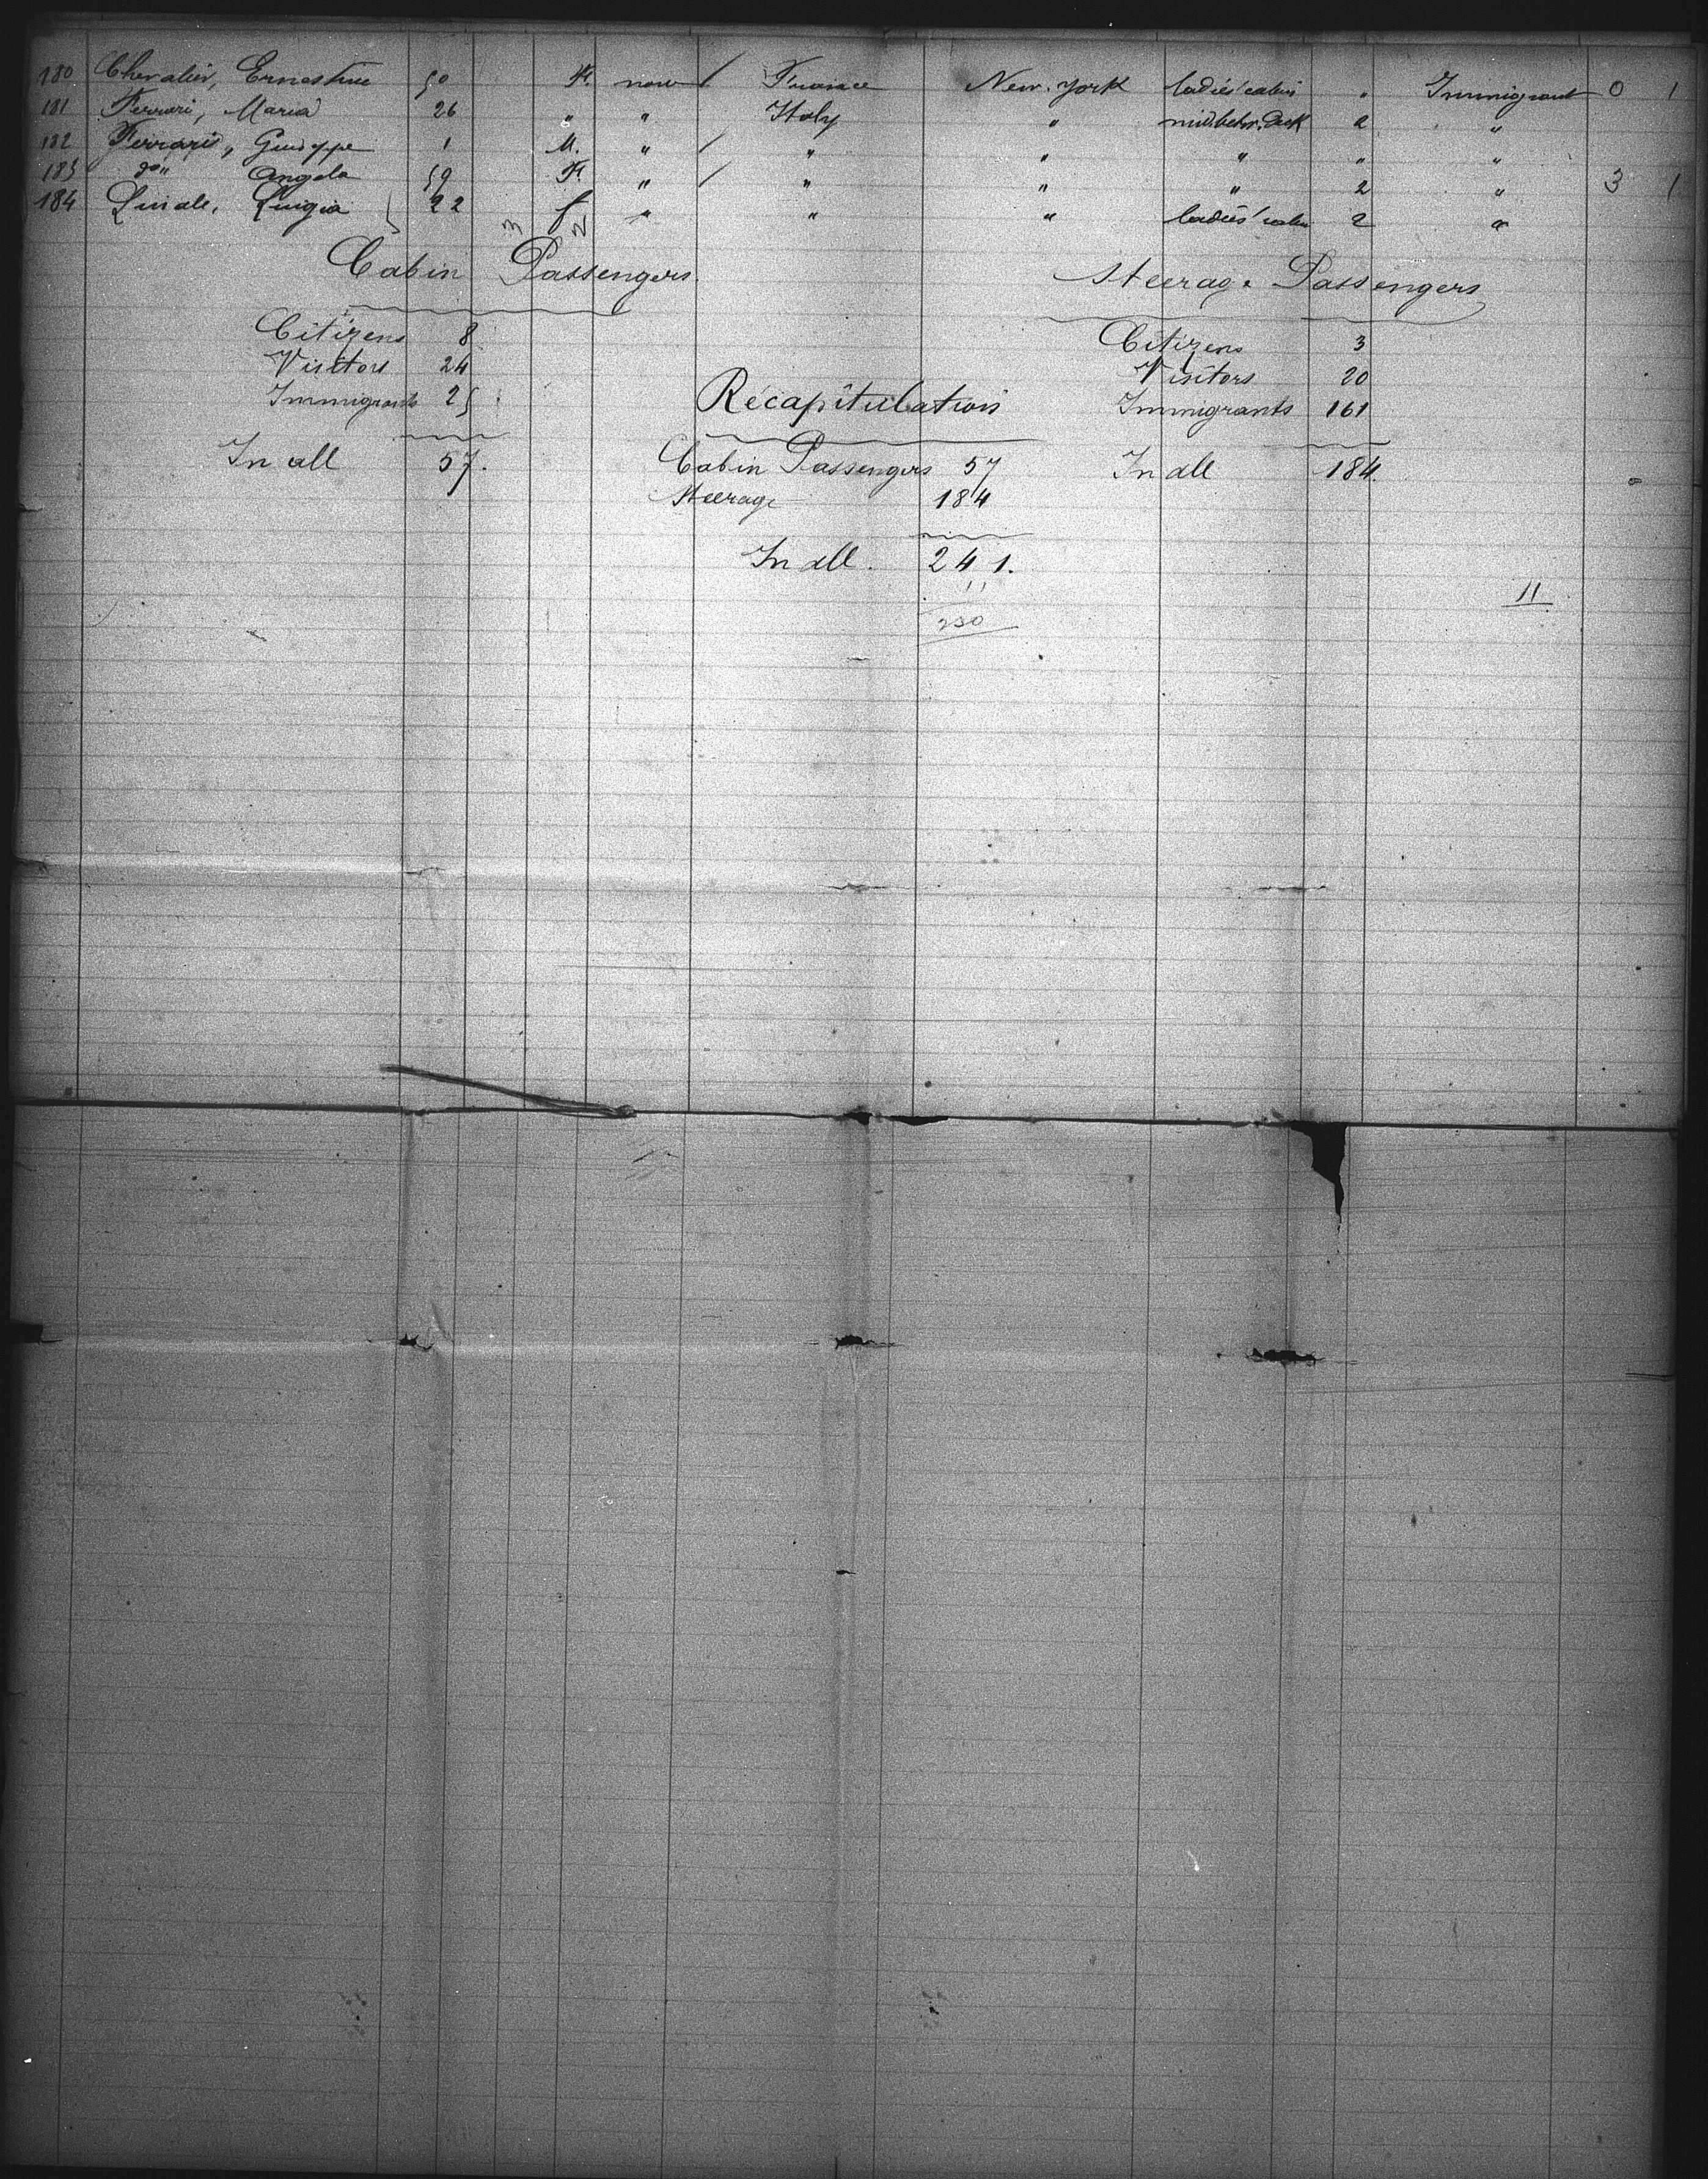 180 Chevalier, Ernestine 50 F. none / France New-York ladies' cabin " Immigrant 0 1
181 Ferrari, Maria 26 " " Italy " mid.betw. deck 2 "
182 Ferraris, Giuseppe 1 M. " / " " " " "
183 do " Angela 59 F. " / " " " 2 " 3 1
184 Linale, Luigia 22 f " " " ladies' cabin 2 "
Cabin Passengers.
Citizens 8
Visitors 24
Immigrants 25
In all 57.
Steerage Passengers
Citizens 3
Visitors 20
Immigrants 161
In all 184.
Recapitulation
Cabin Passengers 57
Steerage 184
In all. 241.
11
230
11